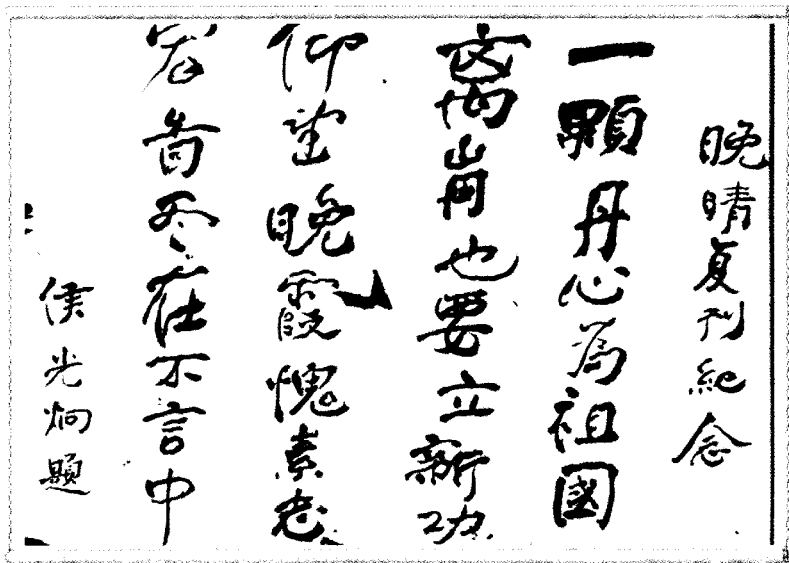 晚晴复刊紀念
一顆丹心為祖國
离崗也要立新功
仰望晚霞愧素志
宏啚尽在不言中
侯光炯題